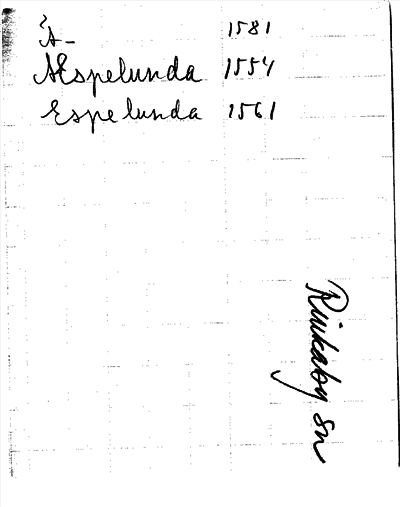 Ä- 1581
Æspelunda 1554
Espelunda 1561
Rinkaby sn